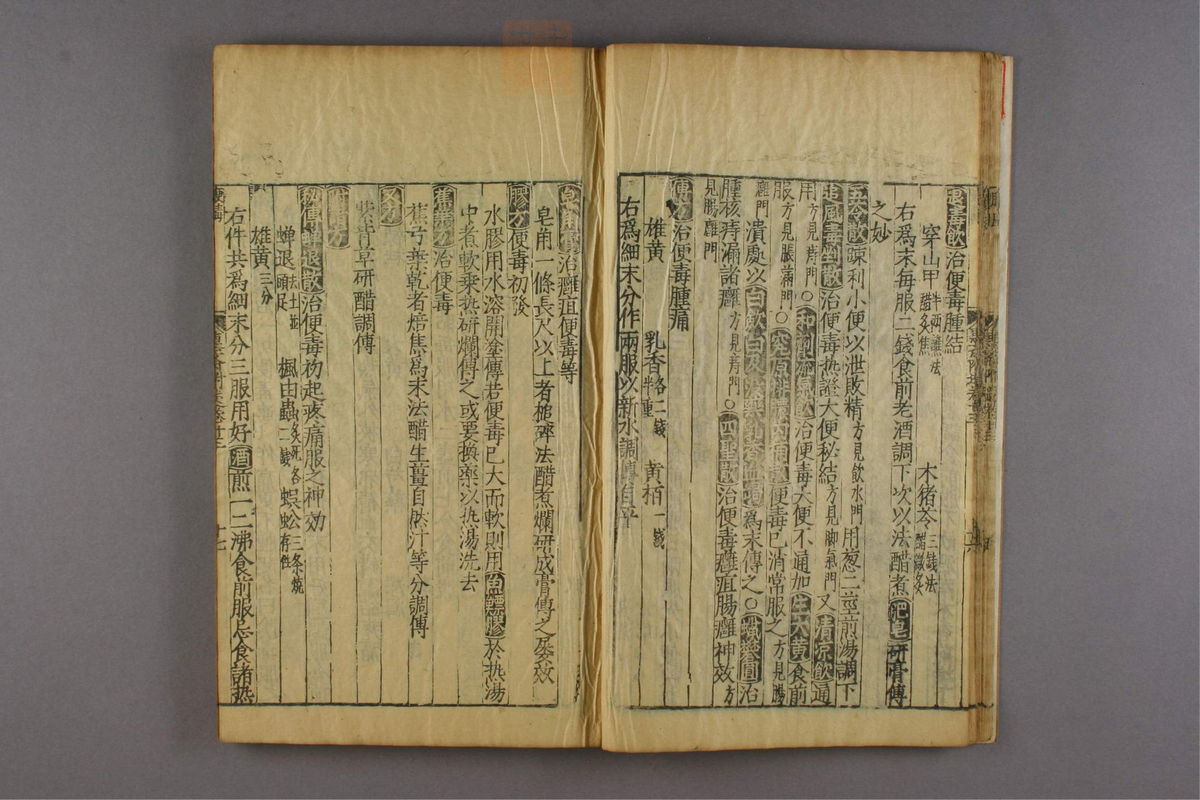 退毒飲治便毒腫結
穿山甲半兩蘸法醋炙焦 木猪苓三錢法醋微炙
右爲末每服二錢食前老酒調下次以法醋煮肥皂研膏傅
之妙
五苓散踈利小便以泄敗精方見飲水門用葱二莖煎湯調下
追風毒剉散治便毒热證大便秘結方見脚氣門又清凉飲通
用方見痔門○治便毒大便不通加生大黃食前
服方見脹滿門○便毒已消常服之方見腸
癰門潰處以爲末傅之○蠟礬圓治
腫核痔漏諸癰方見癰門○四聖散治便毒癰疽腸癰神效方
見腸癰門
傅方治便毒腫痛
雄黃 乳香各二錢半重 黃栢一錢
右爲細末分作兩服以新水調傅自平
治癰疽便毒等
皂角一條長尺以上者槌碎法醋煮爛研成膏傅之屡效
膠方便毒初發
水膠用水溶開塗傅若便毒已大而軟則用魚鰾膠於热湯
中煮軟乗热研爛傅之或要換藥以热湯洗去
蕉葉方治便毒
蕉芍葉乾者焙焦爲末法醋生薑自然汁等分調傅
又方
紫背草研醋調傅

秘傳蟬退散治便毒初起疼痛服之神効
蟬退去土並頭足 楓由蟲炙死各二錢 蜈蚣三条燒存性
雄黃三分
右件共爲細末分三服用好酒煎一二沸食前服忌食諸热
十七